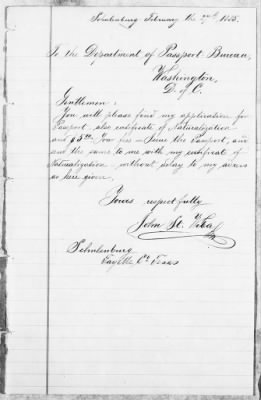 Schulenburg February the 1885.
To the Department of Passport Bureau,
Washington,
D. of C.
Gentlemen:
You will please find my application for
Passport also certificate of Naturalization
and $5.00. You issue the Passport, and
send the same to me with my certificate of
Naturalization without delay to my address
as here given.
Yours respectfully
John St.
Schulenburg
Fayette Co. Texas